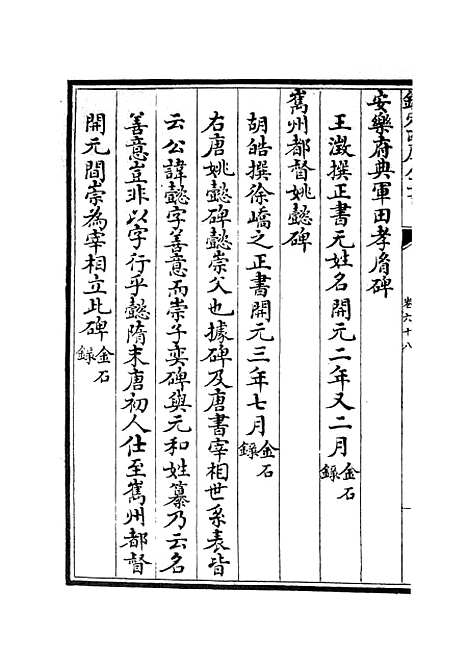 卷六十八
安樂府典軍田孝脩碑
王澂撰正書无姓名開元二年又二月金石錄
巂州都督姚懿碑
胡皓撰徐嶠之正書開元三年七月金石錄
右唐姚懿碑懿崇父也據碑及唐書宰相世系表皆
云公諱懿字善意而崇子奕碑與元和姓纂乃云名
善意豈非以字行乎懿隋末唐初人仕至巂州都督
開元間崇為宰相立此碑金石錄